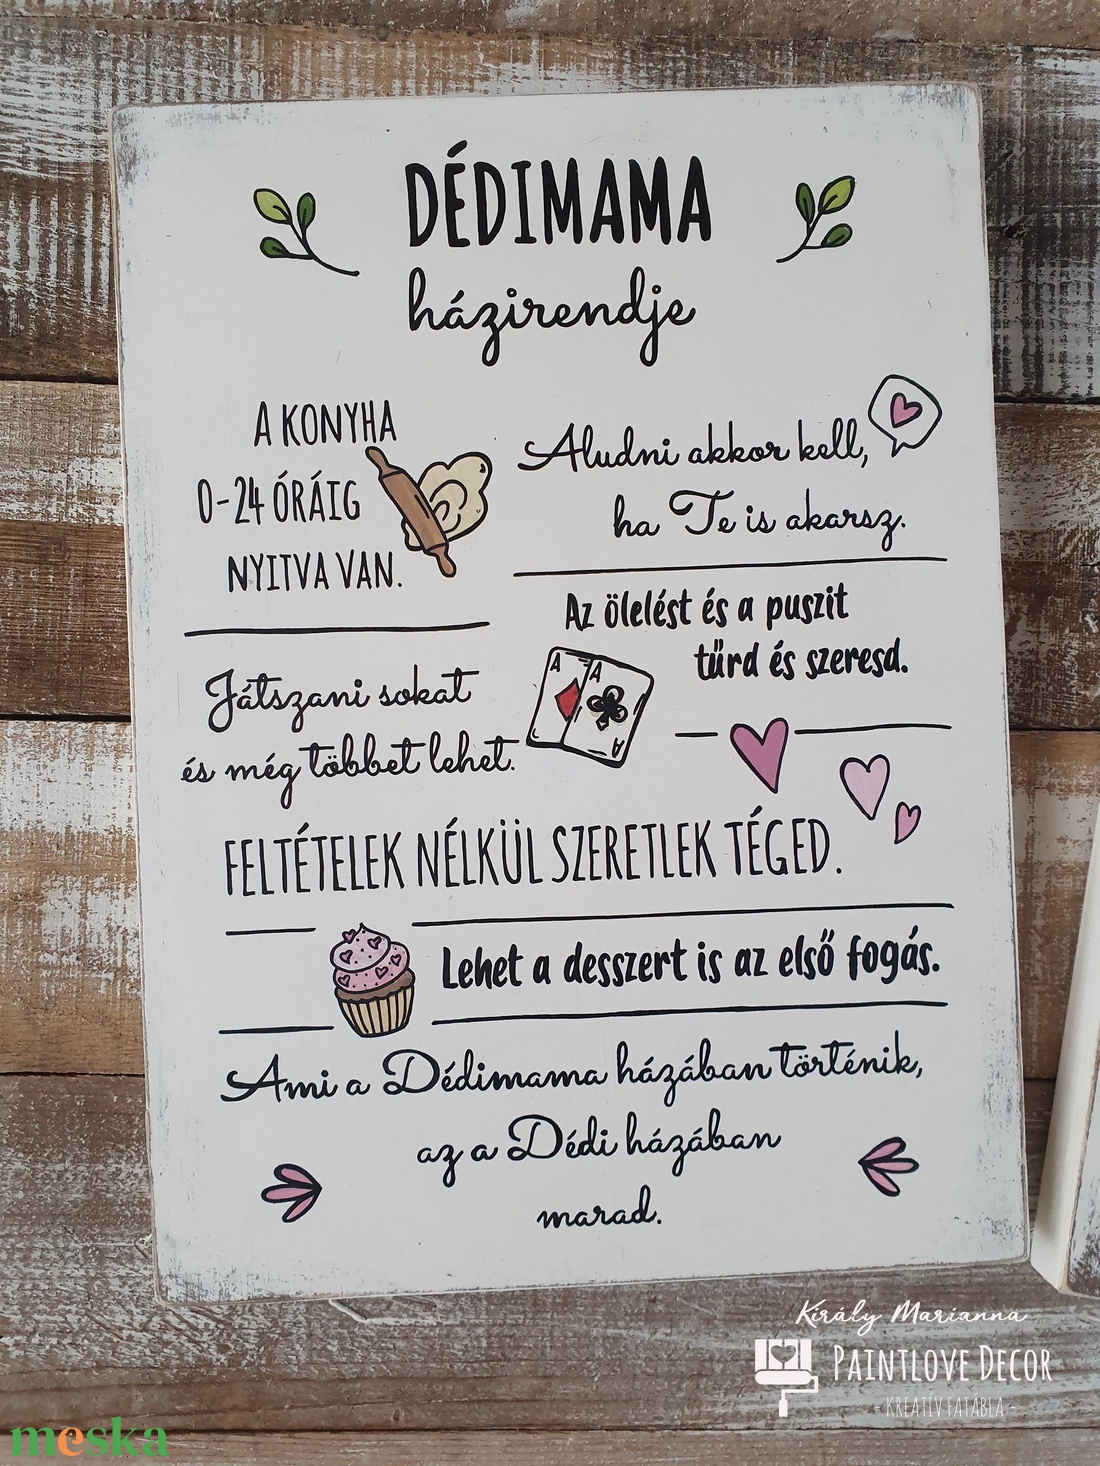 DÉDIMAMA
házirendje
A KONYHA
0-24 ÓRÁIG
NYITVA VAN.
Aludni akkor kell,
ha Te is akarsz.
Az ölelést és a puszit
tűrd és szeresd.
Játszani sokat
és még többet lehet.
A
A
A
FELTÉTELEK NÉLKÜL SZERETLEK TÉGED.
Lehet a desszert is az első fogás.
Ami a Dédimama házában történik,
az a Dédi házában
marad.
Király Marianna
PAINTLOVE DECOR
- KREATÍV FATÁBLA -
meska